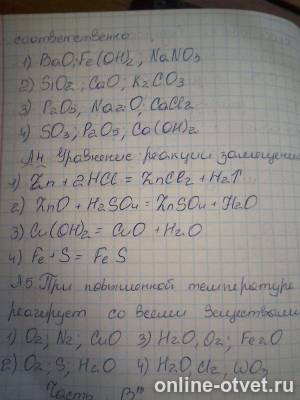 соответственно
1) BaO; Fe(OH)2; NaNO3
2) SiO2; CaO; K2CO3
3) P2O5, Na2O; CaCl2
4) SO3; P2O5; Ca(OH)2
А4. Уравнение реакции замещения
1) Zn + 2HCl = ZnCl2 + H2↑
2) ZnO + H2SO4 = ZnSO4 + H2O
3) Cu(OH)2 = CuO + H2O
4) Fe + S = FeS
А5. При повышенной температуре
реагирует со всеми веществами
1) O2; N2; CuO 3) H2O, O2; Fe2O
2) O2; S, H2O 4) H2O, Cl2, WO3
Часть „В"
online-otvet.ru